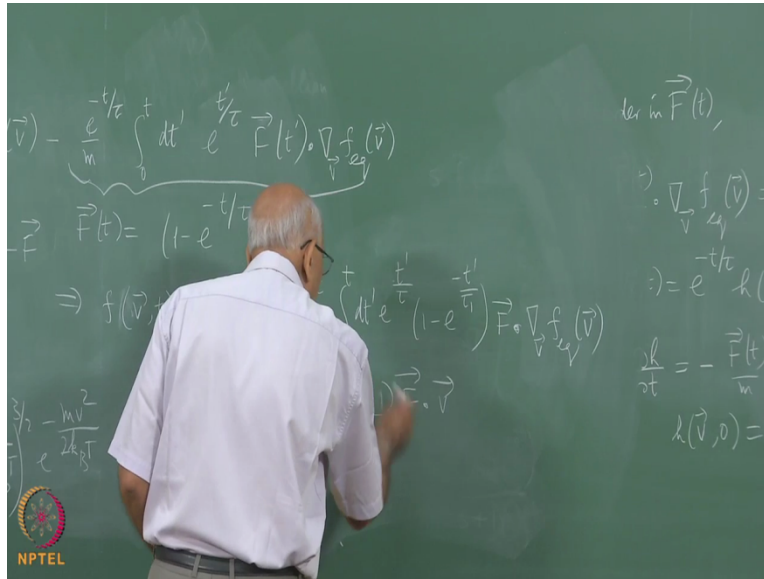 (v⃗) - e^{-t/τ}/m ∫_0^t dt' e^{t'/τ} F⃗(t')·∇_{v⃗} f_{eq}(v⃗)
F⃗ F⃗(t) = (1-e^{-t/τ
⇒ f(v⃗,t
∫^t dt' e^{t'/τ} (1-e^{-t'/τ_1}) F⃗·∇_{v⃗} f_{eq}(v⃗)
)F⃗·v⃗
)^{3/2} e^{-mv²/2k_BT}
der in F⃗(t),
)·∇_{v⃗} f_{eq}(v⃗) =
:)= e^{-t/τ} h(
∂h/∂t = - F⃗(t)/m
h(v⃗,0) =
NPTEL